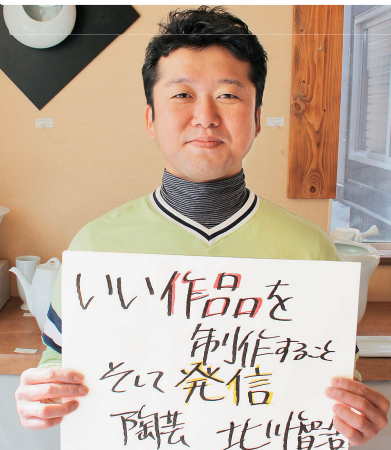 いい作品を
制作すること
そして発信
陶芸 北川智浩